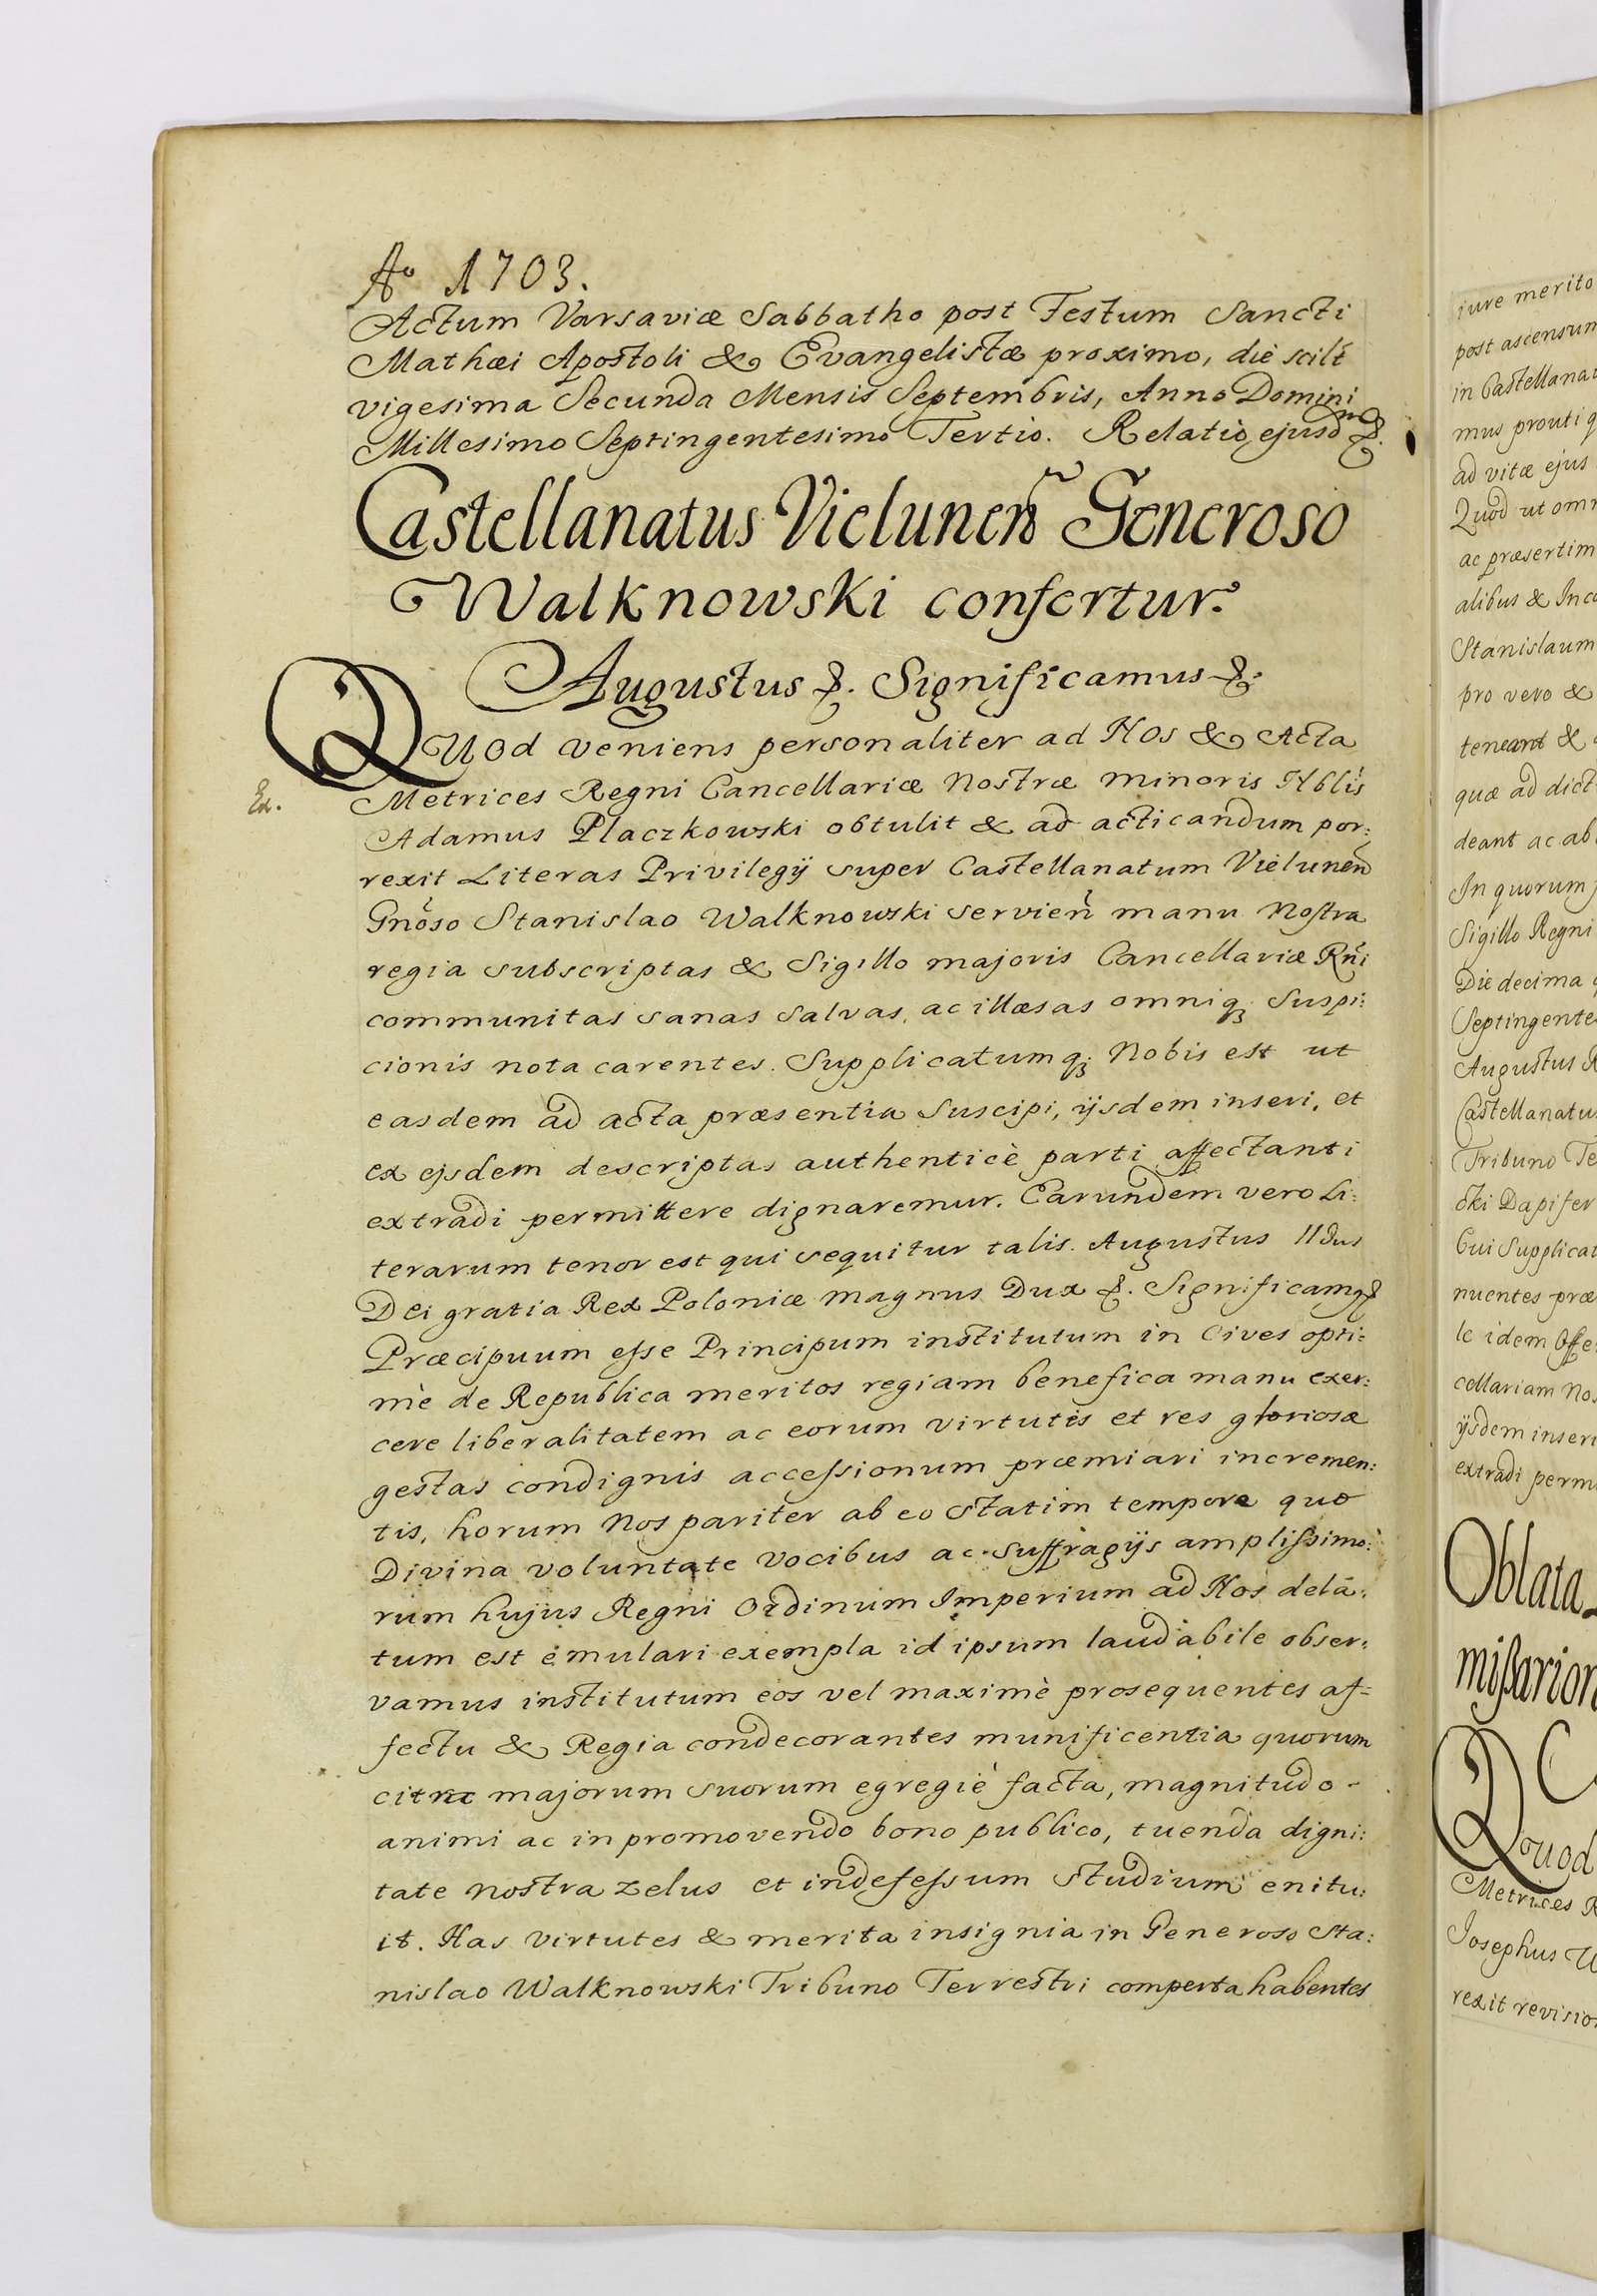 Aº 1703.
Actum Varsaviæ Sabbatho post Festum Sancti
Mathæi Apostoli & Evangelistæ proximo, die scilt
vigesima Secunda Mensis Septembris, Anno Domini
Millesimo Septingentesimo Tertio. Relatio ejusdm &.
Castellanatus Vielunen Generoso
Walknowski confertur.
Augustus &. Significamus &.
QUod veniens personaliter ad Nos & Acta
Ex.
Metrices Regni Cancellariæ Nostræ minoris Nblis
Adamus Placzkowski obtulit & ad acticandum por:
rexit Literas Privilegij super Castellanatum Vielunen
Gnoso Stanislao Walknowski servien manu Nostra
regia subscriptas & Sigillo majoris Cancellariæ Rni
communitas sanas salvas, ac illæsas omniq; Suspi:
cionis nota carentes. Supplicatumq; Nobis est ut
easdem ad acta præsentia Suscipi, ijsdem inseri, et
ex ejsdem descriptas authenticè parti affectanti
extradi permittere dignaremur. Earundem vero Li:
terarum tenor est qui sequitur talis. Augustus IIdus
Dei gratia Rex Poloniæ magnus Dux &. Significamq &
Præcipuum esse Principum institutum in Cives opti:
mè de Republica meritos regiam benefica manu exer:
cere liberalitatem ac eorum virtutes et res gloriosæ
gestas condignis accessionum præmiari incremen:
tis, horum Nos pariter ab eo statim tempore quo
Divina voluntate vocibus ac Suffragijs amplissimo:
rum hujus Regni Ordinum Imperium ad Nos delà:
tum est emulari exempla id ipsum laudabile obser:
vamus institutum eos vel maximè prosequentes af=
fectu & Regia condecorantes munificentia quorum
citra majorum suorum egregiè facta, magnitudo -
animi ac in promovendo bono publico, tuenda digni:
tate nostra zelus et indefessum studium enitu:
it. Has virtutes & merita insignia in Generoso Sta:
nislao Walknowski Tribuno Terrestri comperta habentes
iure merito
post ascensum
in Castellanat
mus prouti q
ad vitæ ejus
Quod ut omn
ac præsertim
alibus & Inco
Stanislaum
pro vero &
teneant &
quæ ad dict
deant ac ab
In quorum
Sigillo Regni
Die decima
Septingente
Augustus R
Castellanatu
Tribuno Te
cki Dapifer
Cui Supplicat
nuentes præ
le idem Offe
cellariam Nos
ijsdem inseri
extradi perm
Oblata
mißarion
Quod
Metrices R
Josephus W
rexit revisio